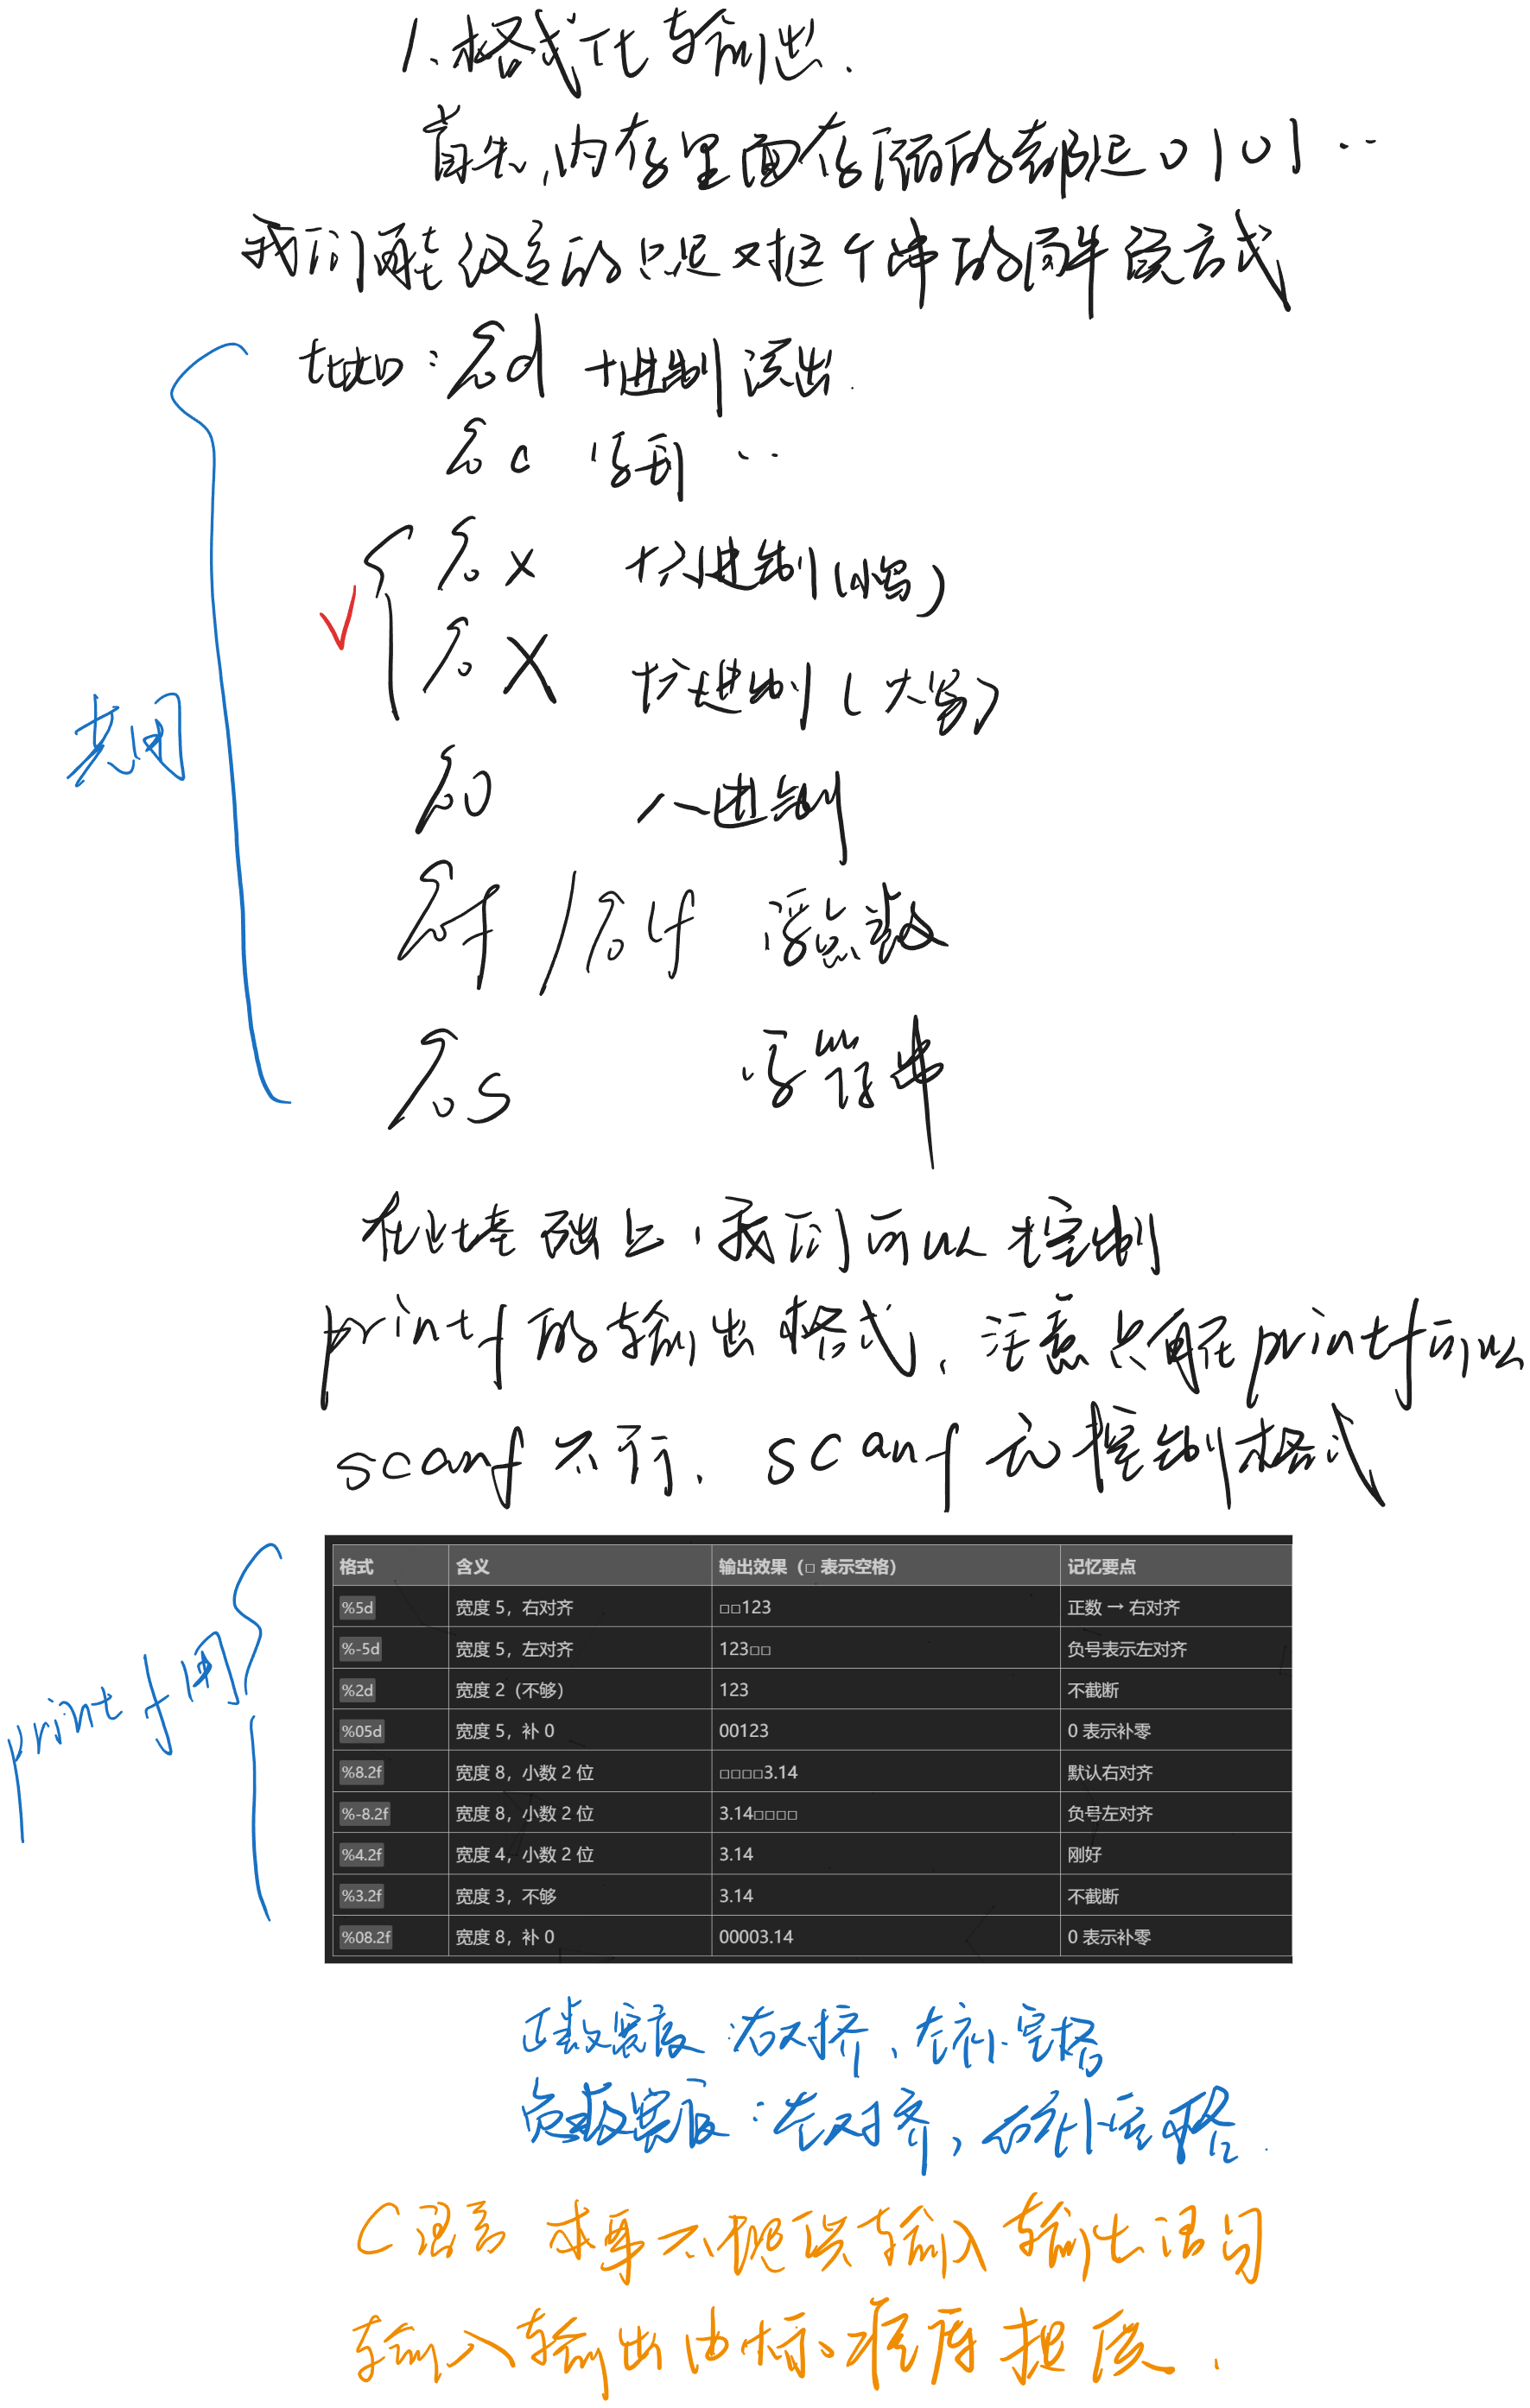 1.格式化输出.
首先,内存里面存储的都是0101..
我们能改变的只是对这个串的解读方式
比如:%d 十进制读出.
%c 字母 ..
%x 十六进制(小写)
%X 十六进制(大写)
共用
%o 八进制
%f /%lf 浮点数
%s 字符串
在此基础上,我们可以控制
printf的输出格式.注意只有在printf可以
scanf不行. scanf 控制格式
printf用
格式 含义 输出效果(□ 表示空格) 记忆要点
%5d 宽度 5，右对齐 □□123 正数 → 右对齐
%-5d 宽度 5，左对齐 123□□ 负号表示左对齐
%2d 宽度 2（不够） 123 不截断
%05d 宽度 5，补 0 00123 0 表示补零
%8.2f 宽度 8，小数 2 位 □□□□3.14 默认右对齐
%-8.2f 宽度 8，小数 2 位 3.14□□□□ 负号左对齐
%4.2f 宽度 4，小数 2 位 3.14 刚好
%3.2f 宽度 3，不够 3.14 不截断
%08.2f 宽度 8，补 0 00003.14 0 表示补零
正数宽度:右对齐,左补空格
负数宽度:左对齐,右补空格.
C语言 本身不提供输入输出语句
输入输出由标准库提供.